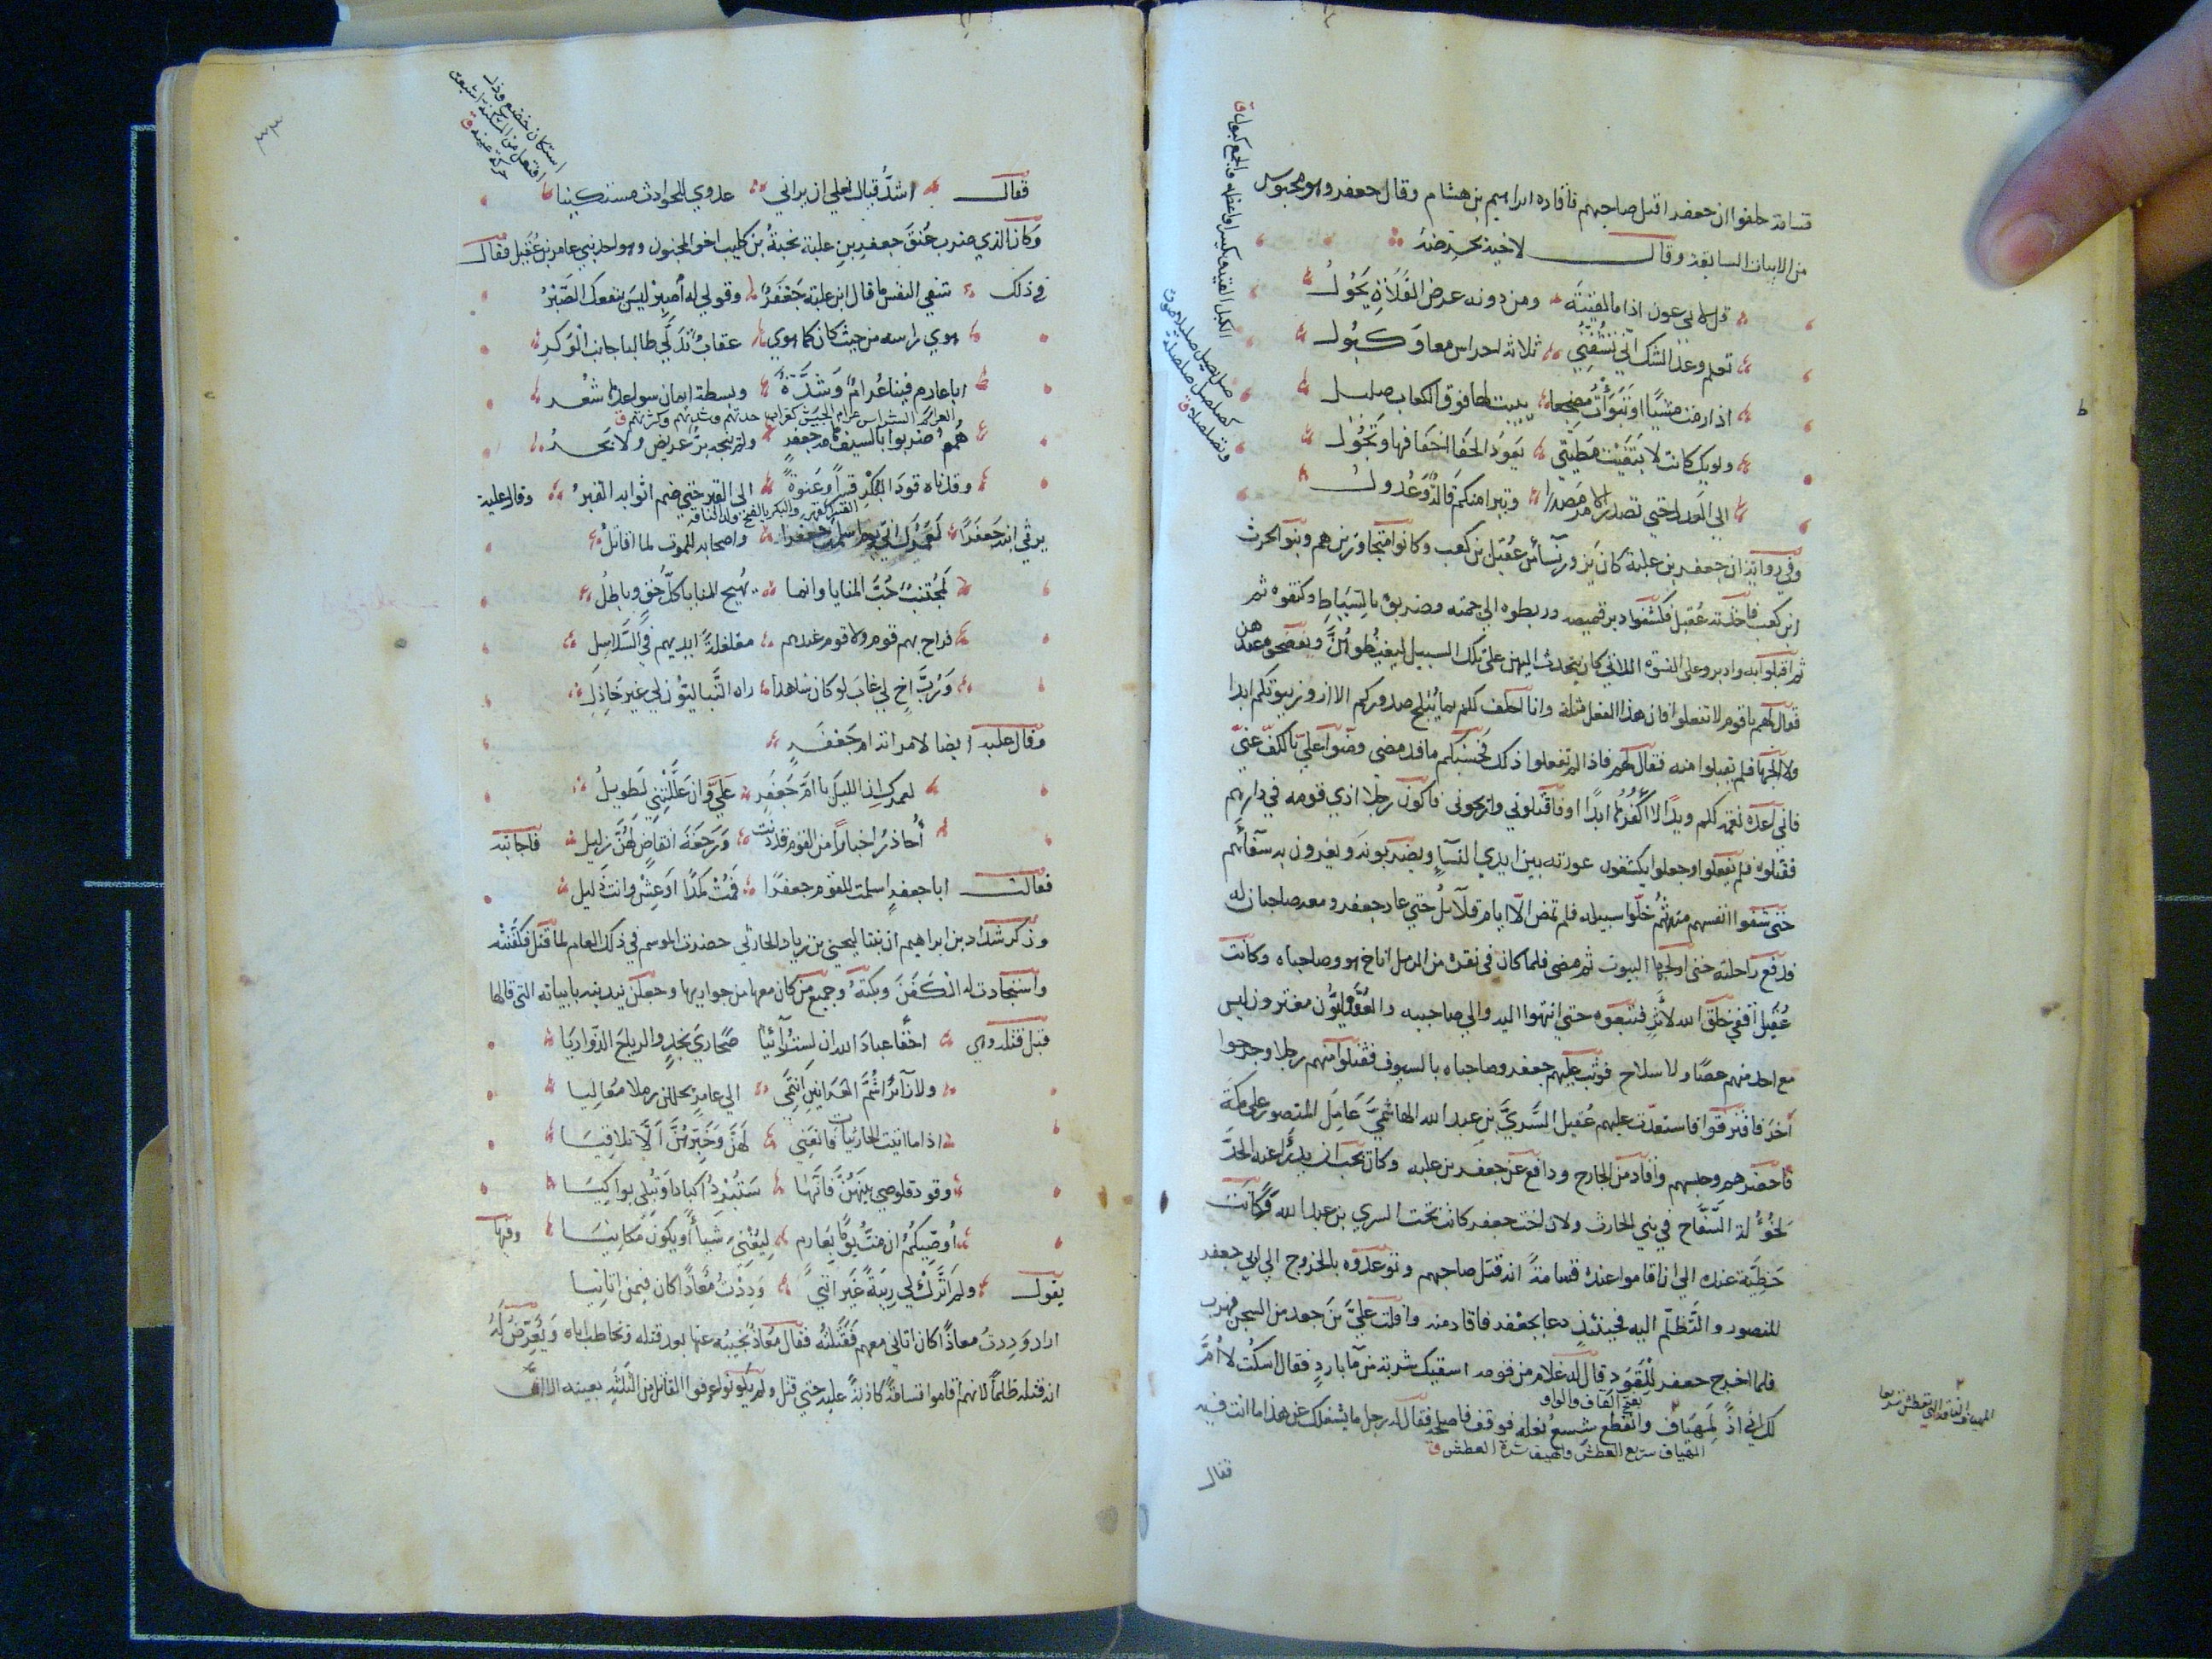 قسامة حلفوا ان جعفرا قتل صاحبهم فاقاده ابراهيم بن هشام وقال جعفر وهو محبوس
من الابيات السابقة وقال لاخيه يحرضه
قل لابي عون اذا ما لقيته ومن دونه عرض الفلاة يحول
تعلم وعد الشك اني تشفني ثلاثة احراس معا وكبول
اذا رمت مشيا او تبوأت مضجعا يبيت لها فوق الكعاب صليل
ولو بك كانت لابتغيت مطيتي يعود الحفا اخفافها وتجول
الى العدل حتى تصدر الامر مصدرا وتبرا منكم قالة وعدول
وفي رواية ان جعفر بن علبة كان يزور نسآء من عقيل بن كعب وكانوا متجاورين هم وبنو الحرث
ابن كعب فاخذته عقيل فكشفوا دبر قميصه وربطوه الى جمته وضربوه بالسياط وكتفوه ثم
ثم اقبلوا به وادبروا على النسوة اللاتي كان يتحدث اليهن على تلك السبيل ليغيظوهن ويفضحوه عندهن
فقال لهم يا قوم لا تفعلوا فان هذا الفعل مثلة وانا احلف لكم بما يثلج صدوركم الا ازور بيوتكم ابدا
ولا الجها فلم يقبلوا منه فقال لهم فاذا لم تفعلوا ذلك فحسبكم ما قد مضى ومنوا علي بالكف عني
فاني اعده نعمة لكم ويدا لا اكفرها ابدا او فاقتلوني وتريحوني فاكون رجلا اذى قومه في دارهم
فقتلوه فلم يفعلوا وجعلوا يكشفون عورته بين ايدي النسآء ويضربونه ويغرون به سفآءهم
حتى شفوا انفسهم منه ثم خلوا سبيله فلم تمض الا ايام قلآئل حتى عاد جعفر ومعه صاحبان له
فدفع راحلته حتى اولجها البيوت ثم مضى فلما كان في نقرة من الرمل اناخ هو وصاحباه وكانت
عقيل اقفى خلق الله لاثر فتبعوه حتى انتهوا اليه والى صاحبيه والعقيليون مغترون ليس
مع احد منهم عصا ولا سلاح فوثب عليهم جعفر وصاحباه بالسيوف فقتلوا منهم رجلا وجرحوا
آخر فافترقوا فاستعدت عليهم عقيل السري بن عبد الله الهاشمي عامل المنصور على مكة
فاحضرهم وحبسهم واقاد من الجارح ودافع عن جعفر بن علبة وكان يحب ان يدرأ عنه الحد
لخؤولة السفاح في بني الحارث ولان اخت جعفر كانت تحت السري بن عبد الله وكانت
حظية عنده الى ان اقاموا عنده قسامة انه قتل صاحبهم وتوعدوه بالخروج الى ابي جعفر
المنصور والتظلم اليه فحينئذ دعا بجعفر فاقاد منه وافلت علي بن جعدب من السجن فهرب
فلما اخرج جعفر للقود قال له غلام من قومه اسقيك شربة من مآء بارد فقال اسكت لا ام
بفتح القاف والواو
لك اني اذا لمهياف وانقطع شسع نعله فوقف فاصلحه فقال له رجل ما يشغلك عن هذا ما انت فيه
المهياف سريع العطش والهيف شدة العطش ق
فقال
المهياف الناقة التي تعطش سريعا
الكبل القيد ويكسر او اعظمه والجمع كبول ق
صل يصل صليلا صوت
كصلصل صلصلة
وتصلصل ق
استكان خضع وذل
افتعل من المسكنة اشبعت
حركة عينه ق
فقال اشد قبال نعلي ان يراني عدوي للحوادث مستكينا
وكان الذي ضرب عنق جعفر بن علبة نخبة بن كليب اخو المجنون وهو احد بني عامر بن عقيل فقال
في ذلك شفى النفس ما قال ابن علبة جعفر وقولي له اصبر ليس ينفعك الصبر
هوى راسه من حيث كان كما هوى عقاب تدلى طالبا جانب الوكر
ابا عارم فينا عرام وشدة وبسطة ايمان سواعدها شعر
العرام الشراسة عرام الجيش كغراب حدتهم وشدتهم وكثرتهم ق
هم ضربوا بالسيف هامة جعفر ولم ينجه بر عريض ولا بحر
وقدناه قود البكر قسرا وعنوة الى القبر حتى ضم اثوابه القبر وقال علبة
القسر القهر والبكر بالفتح ولد الناقة
يرثي ابنه جعفرا لعمرك اني يوم اسلمت جعفرا واصحابه للموت لما اقاتل
لمجتنب حب المنايا وانما يهيج المنايا كل حق وباطل
فراح بهم قوم ولا قوم عندهم مغلغلة ايديهم في السلاسل
ورب اخ لي غاب لو كان شاهدا رآه التباليون لي غير خاذل
وقال علبة ايضا لامراته ام جعفر
لعمرك ان الليل يا ام جعفر علي وان عللتني لطويل
احاذر اخبارا من القوم قد دنت ورجعة انقاض لهن زليل فاجابته
فقالت ابا جعفر اسلمت للقوم جعفرا فمت كمدا او عش وانت ذليل
وذكر شداد بن ابراهيم ان بنتا ليحيى بن زياد الحارثي حضرت الموسم في ذلك العام لما قتل فكفنته
واستجادت له الكفن وبكته وجميع من كان معها من جواريها وجعلن يندبنه بابياته التي قالها
قبل قتله وهي احقا عباد الله ان لست رآئيا صحاري نجد والرياح الذواريا
ولا زآئرا شم العرانين انتمى الى عامر يحللن رملا معاليا
اذا ما اتيت الحارثيات فانعني لهن وخبرهن الا تلاقيا
وقود قلوصي بينهن فانها ستبرد اكبادا وتبلي بواكيا
اوصيكم ان مت يوما بعارم ليغني شيئا او يكون مكانيا وفيها
يقول ولم اترك لي ريبة غير انني وددت معاذا كان فيمن اتانيا
اراد وددت معاذا كان اتاني معهم فقتلته فقال معاذ يجيبه عنها بعد قتله ويخاطب اباه ويعرض له
انه قتل ظلما لانهم اقاموا قسامة كاذبة عليه حتى قتل ولم يكونوا عرفوا القاتل من الثلثة بعينه الا ان